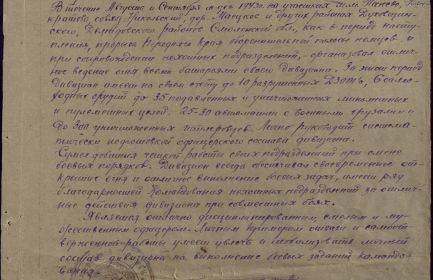 В течение Августа и Сентября м-цев 1943г. на участках ... Паново, ...
..., совхоз Никольский, дер. ... и других районах Духовщин-
ского, Демидовского районов Смоленской обл., как в период насту-
пления, прорыва переднего края оборонительной полосы немцев и
при сопровождении пехотных подразделений, организовал отлич-
ное ведение огня всеми батареями своего дивизиона. За этот период
дивизион имеет на своем счету до 10 разрушенных ДЗОТ, 6 само-
ходных орудий до 35 подавленных и уничтоженных минометных
и пулеметных целей. 25-30 автомашин с военными грузами и
до 300 уничтоженных гитлеровцев. Лично руководит система-
тически подготовкой офицерского состава дивизиона.
Сумел добиться четкой работы своих подразделений при смене
боевых порядков. Дивизион всегда обеспечивал своевременное от-
крытие огня и отличное выполнение боевых задач, имеет ряд
благодарностей командования пехотных подразделений за отлич-
ные действия дивизиона при совместных боях.
Являясь отлично дисциплинированным, смелым и му-
жественным офицером. Личным примером отваги и самоот-
верженной работы умеет увлечь и мобилизовать личный
состав дивизиона на выполнение боевых заданий командо-
вания.